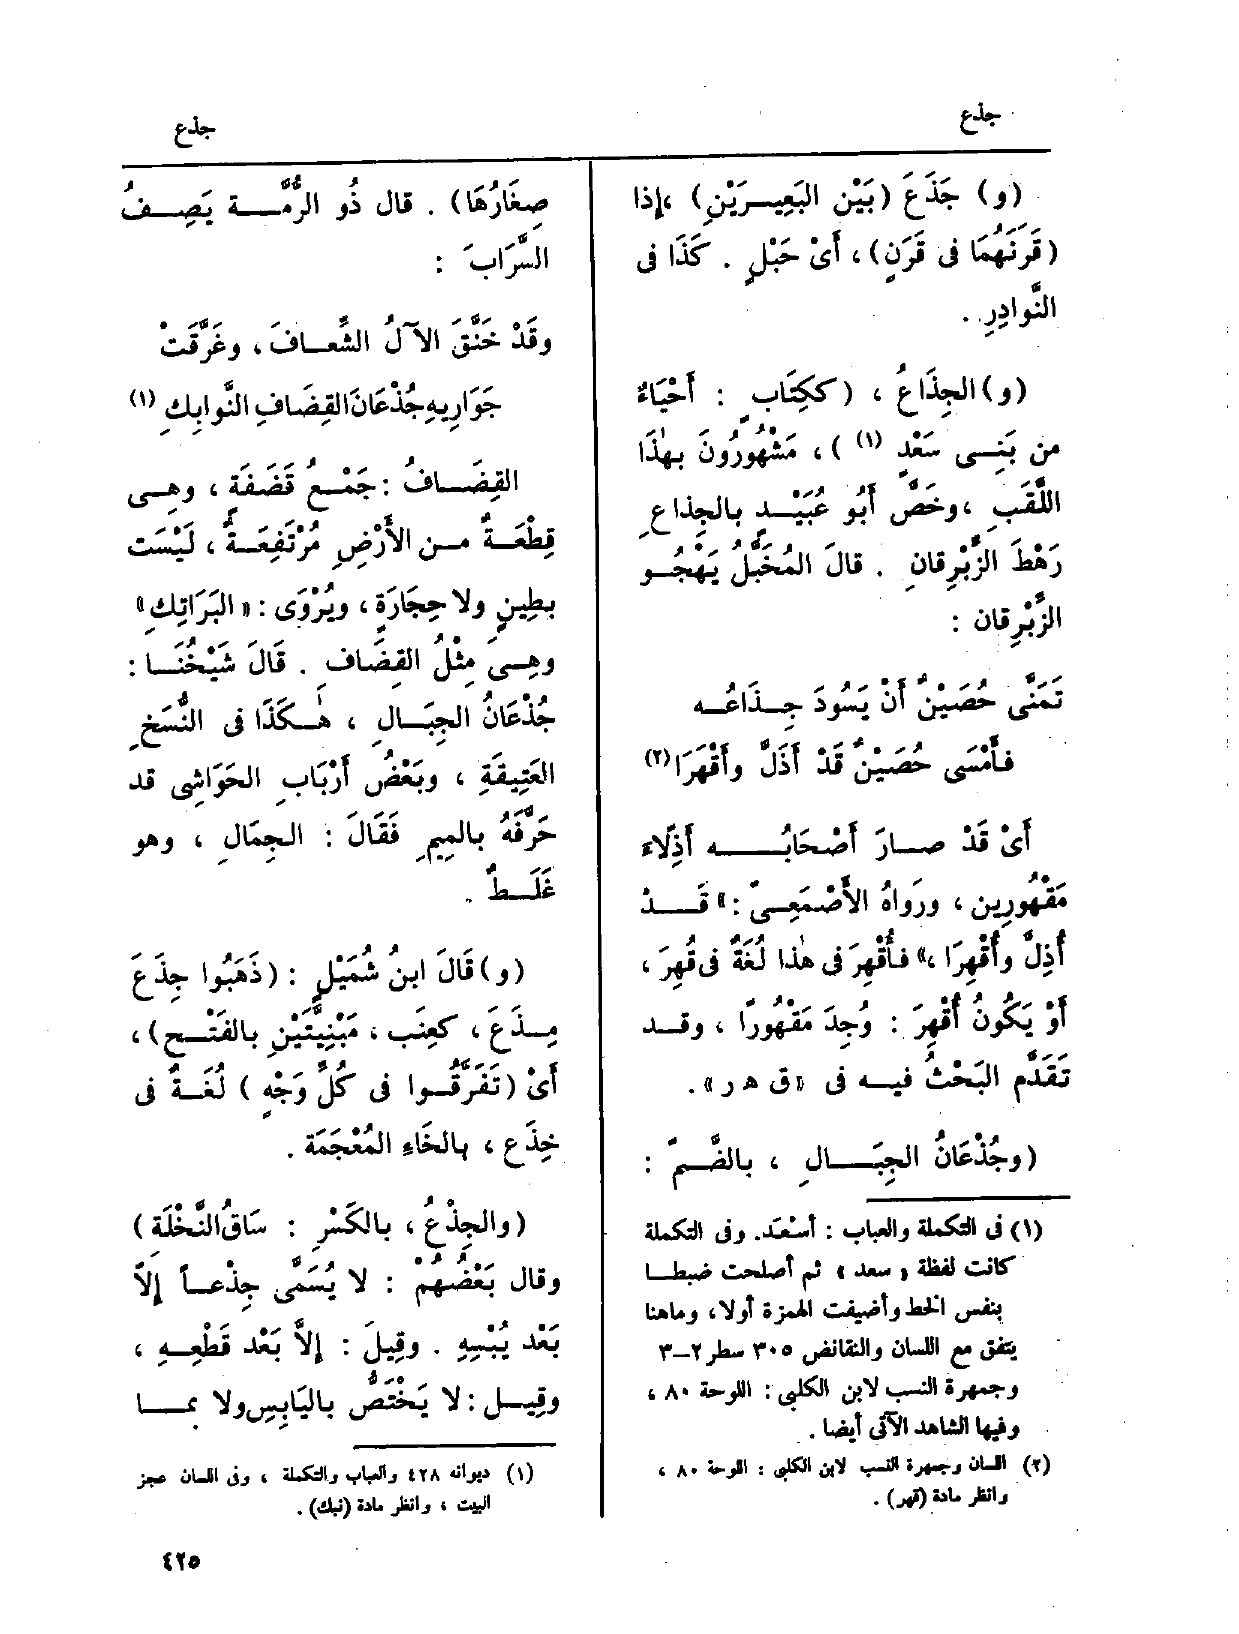 جذع
جذع
(و) جَذَعَ (بَيْن البَعِيـرَيْنِ) ،إذا
(قَرَنَهُمَا فى قَرَنٍ)، أَىْ حَبْلٍ . كَذَا فى
النَّوادِرِ .
(و) الجِذَاعُ ، (ككِتَابٍ : أَحْيَاءٌ
من بَنِـى سَعْدٍ (١) )، مَشْهُورُونَ بهٰذَا
اللَّقَبِ ،وخَصَّ أَبُو عُبَيْـدٍ بالجِذاعِ
رَهْطَ الزِّبْرِقانِ . قالَ المُخَبَّلُ يَهْجُـو
الزِّبْرِقان :
تَمَنَّى حُصَيْنٌ أَنْ يَسُودَ جِـذَاعُـه
فـأَمْسَى حُصَيْنٌ قَدْ أَذَلَّ وأَقْهَرَا(٢)
أَىْ قَدْ صـارَ أَصْحَابُـــه أَذِلَّاءَ
مَقْهُورِين ، ورَواهُ الأَصْمَعِـىّ :«قَـــدْ
أُذِلَّ وأُقْهِرَا ،» فـأُقْهِرَ فى هٰذا لُغَةٌ فى قُهِرَ ،
أَوْ يَكُونُ أُقْهِرَ : وُجِدَ مَقْهُورًا ، وقـد
تَقَدَّم البَحْثُ فيـه فى «ق ه ر».
(وجُذْعَانُ الجِبَــالِ ، بالضَّمّ :
(١) فى التكملة والعباب : أسْعَد. وفى التكملة
كانت لفظة « سعد » ثم أصلحت ضبطـا
بنفس الخط وأضيفت الهمزة أولا، وماهنا
يتفق مع اللسان والنقائض ٣٠٥ سطر ٢-٣
وجمهرة النسب لابن الكلبى : اللوحة ٨٠ ،
وفيها الشاهد الآتى أيضا .
(٢) اللسان وجمهرة النسب لابن الكلبى : اللوحة ٨٠ ،
وانظر مادة (قهر) .
صِغَارُهَا) . قال ذُو الرُّمَّــة يَصِــفُ
السَّرَابَ :
وقَدْ خَنَّقَ الآلُ الشِّعـافَ ، وغَرَّقَتْ
جَوَارِيهِ جُذْعَانَ القِضَافِ النَّوابِكِ (١)
القِضَــافُ :جَمْـعُ قَضَفَةٍ ، وهِـى
قِطْعَـةٌ مـن الأَرْضِ مُرْتَفِعَــةٌ ، لَيْسَت
بطِينٍ ولا حِجَارَةٍ ، ويُرْوَى :« البَرَاتِكِ»
وهِـىَ مِثْلُ القِضَافِ . قَالَ شَيْخُنَــا :
جُذْعَانُ الجِبَــالِ ، هٰــكَذَا فى النُّسَخِ
العَتِيقَةِ ، وبَعْضُ أَرْبَابِ الحَوَاشِى قد
حَرَّفَهُ بالمِيمِ فَقَالَ : الجِمَالِ ، وهو
غَلَــطٌ .
(و)قَالَ ابنُ شُمَيْلٍ : (ذَهَبُوا جِذَعَ
مِــذَعَ ، كعِنَبٍ ، مَبْنِيَّتَيْنِ بالفَتْــحِ)،
أَىْ (تَفَرَّقُــوا فى كُلِّ وَجْهٍ ) لُغَــةٌ فى
خِذَع ، بالخَاءِ المُعْجَمَة .
(والجِذْعُ ، بالكَسْرِ : سَاقُ النَّخْلَة)
وقال بَعْضُهُمْ : لا يُسَمَّى جِذْعـاً إلَّا
بَعْد يُبْسِهِ . وقِيلَ : إلَّا بَعْد قَطْعِــهِ ،
وقِيــل : لا يَخْتَصُّ باليَابِسِ ولا بمــا
(١) ديوانه ٤٢٨ والعباب والتكملة ، وفى اللسان عجز
البيت ، وانظر مادة (نبك) .
٤٢٥